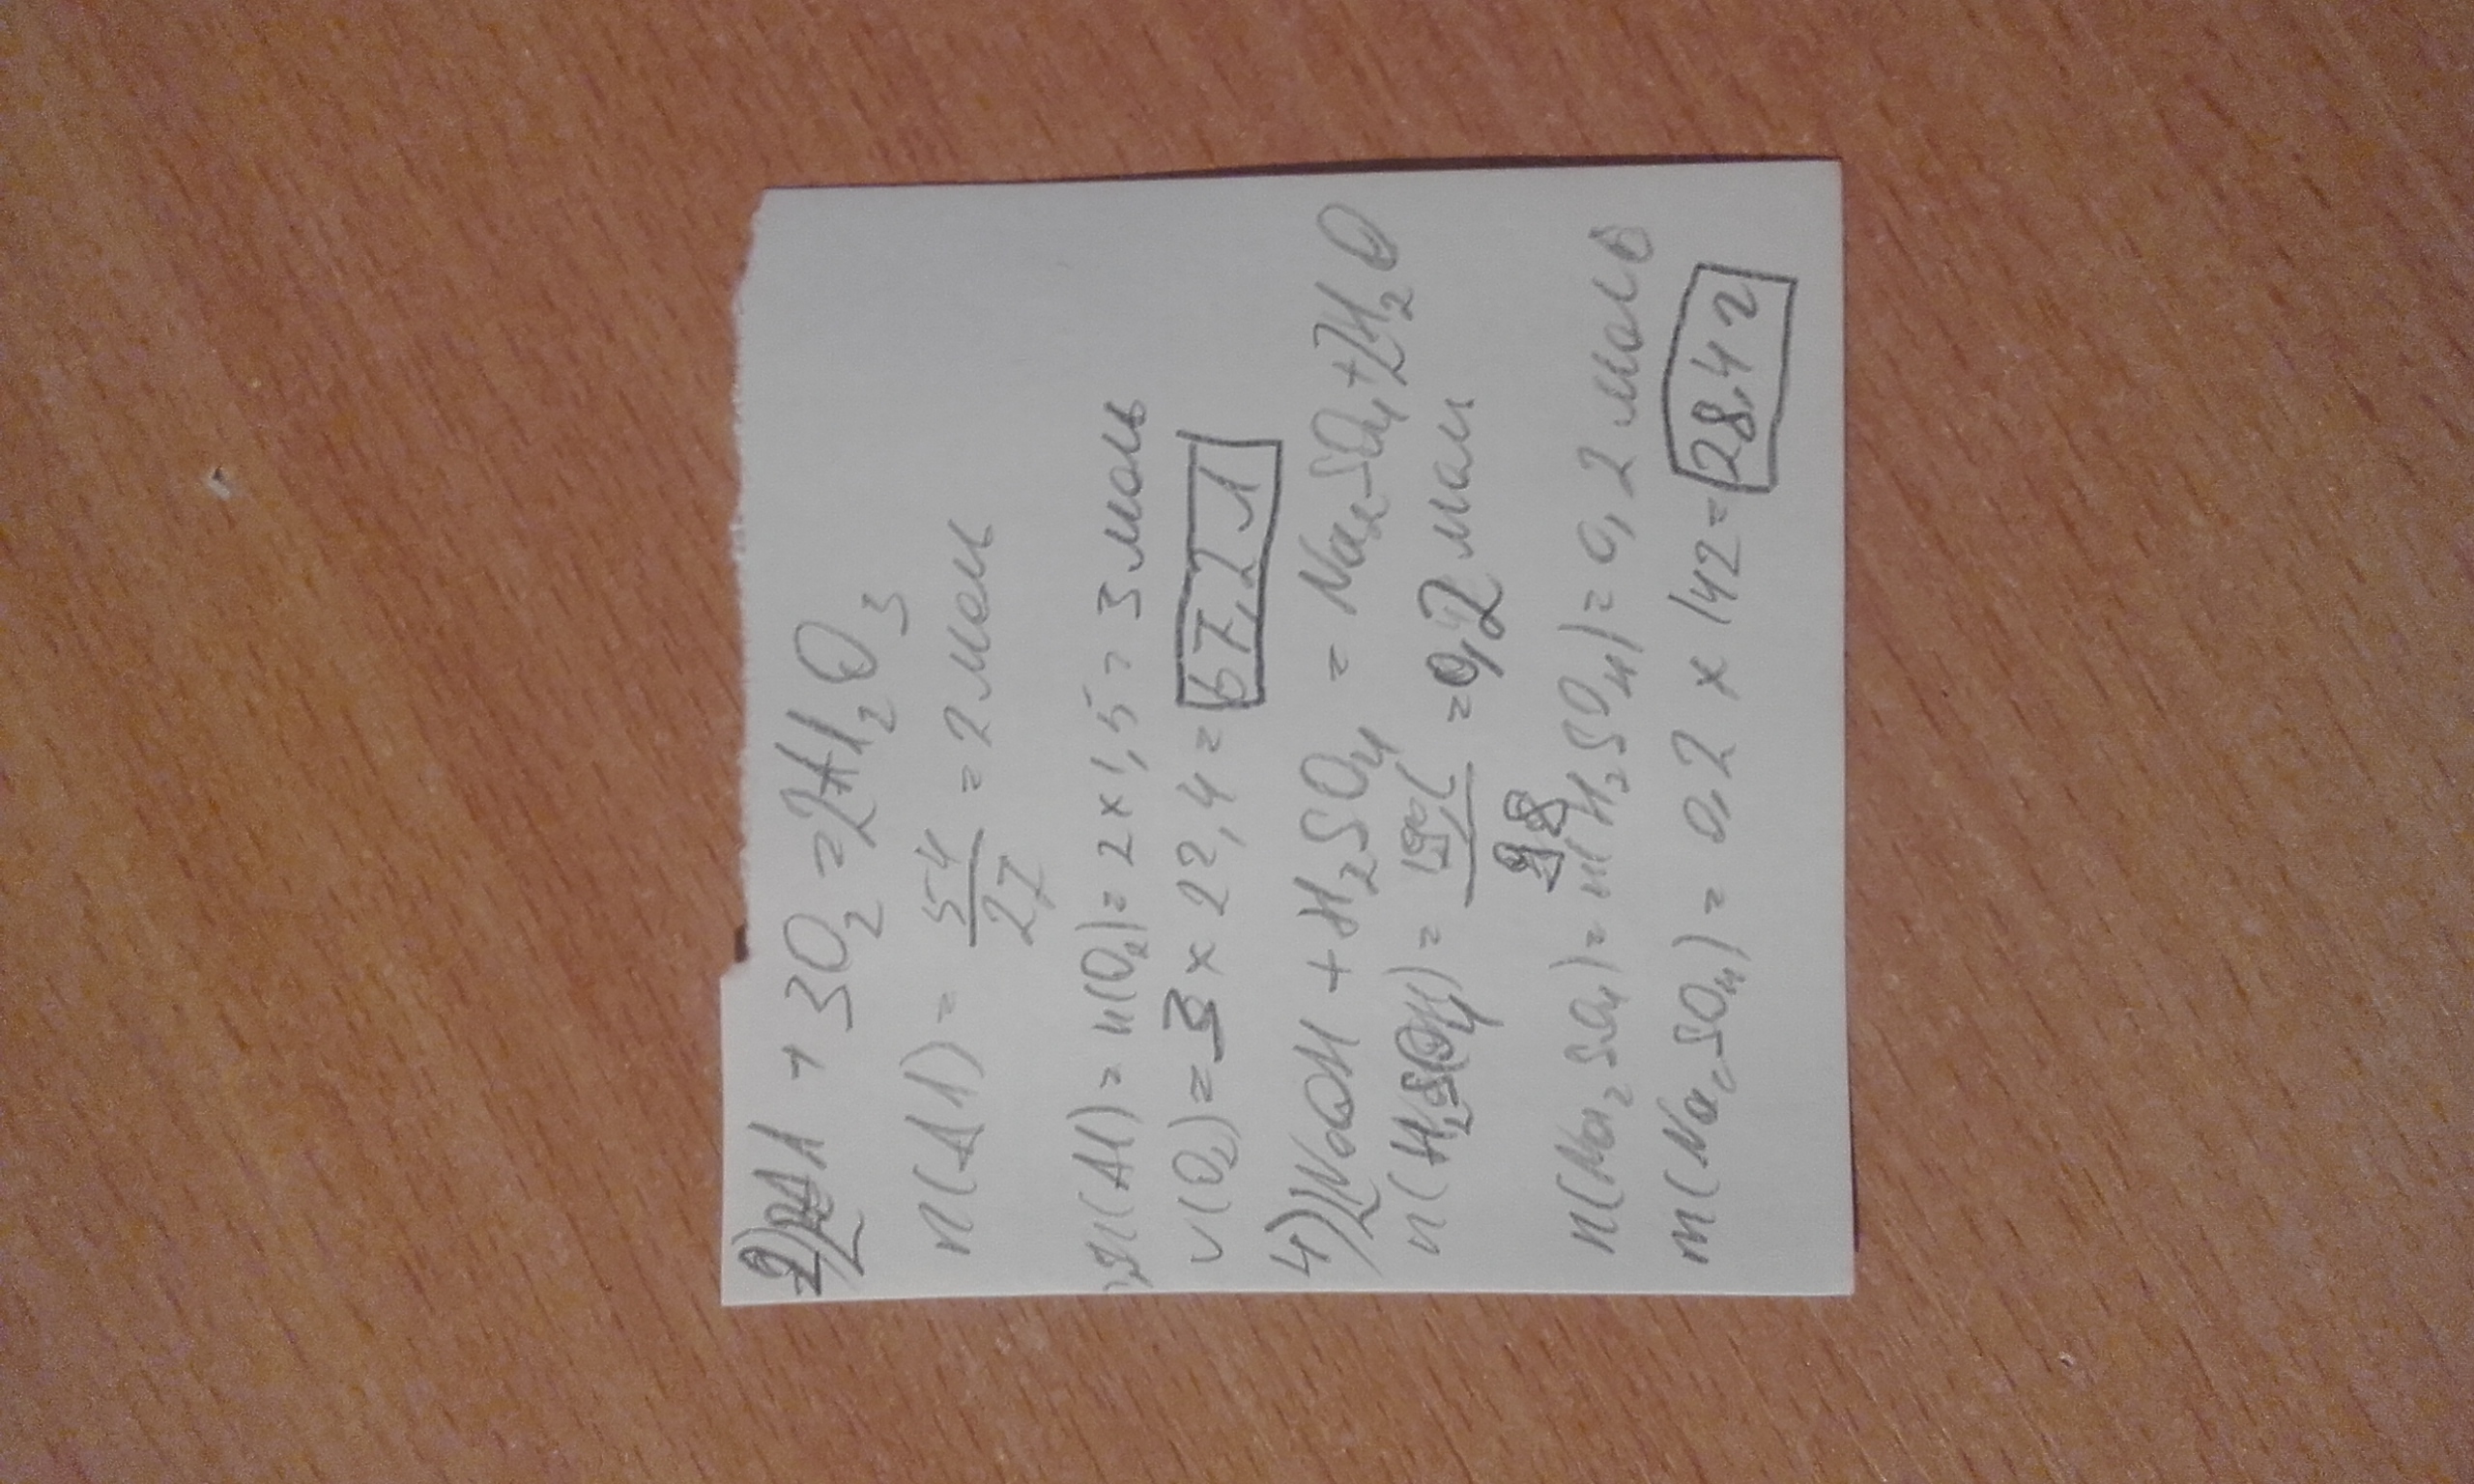 2) 2Al + 3O2 = 2Al2O3
n(Al) = 54/27 = 2 моль
n(Al) = n(O2) = 2 × 1,5 = 3 моль
V(O2) = 3 × 22,4 = 67,2 л
4) 2NaOH + H2SO4 = Na2SO4 + 2H2O
n(H2SO4) = /98 = 0,2 моль
n(Na2SO4) = n(H2SO4) = 0,2 моль
m(Na2SO4) = 0,2 × 142 = 28,4 г